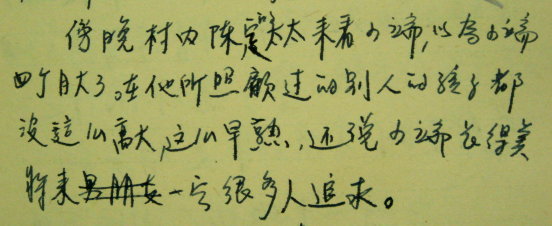 傍晚村内陳太太来看小端,以为小端
四个月大了。在他所照顧过的别人的孩子都
没這么高大,这么早熟,还说小端长得美
将来男朋友一定很多人追求。